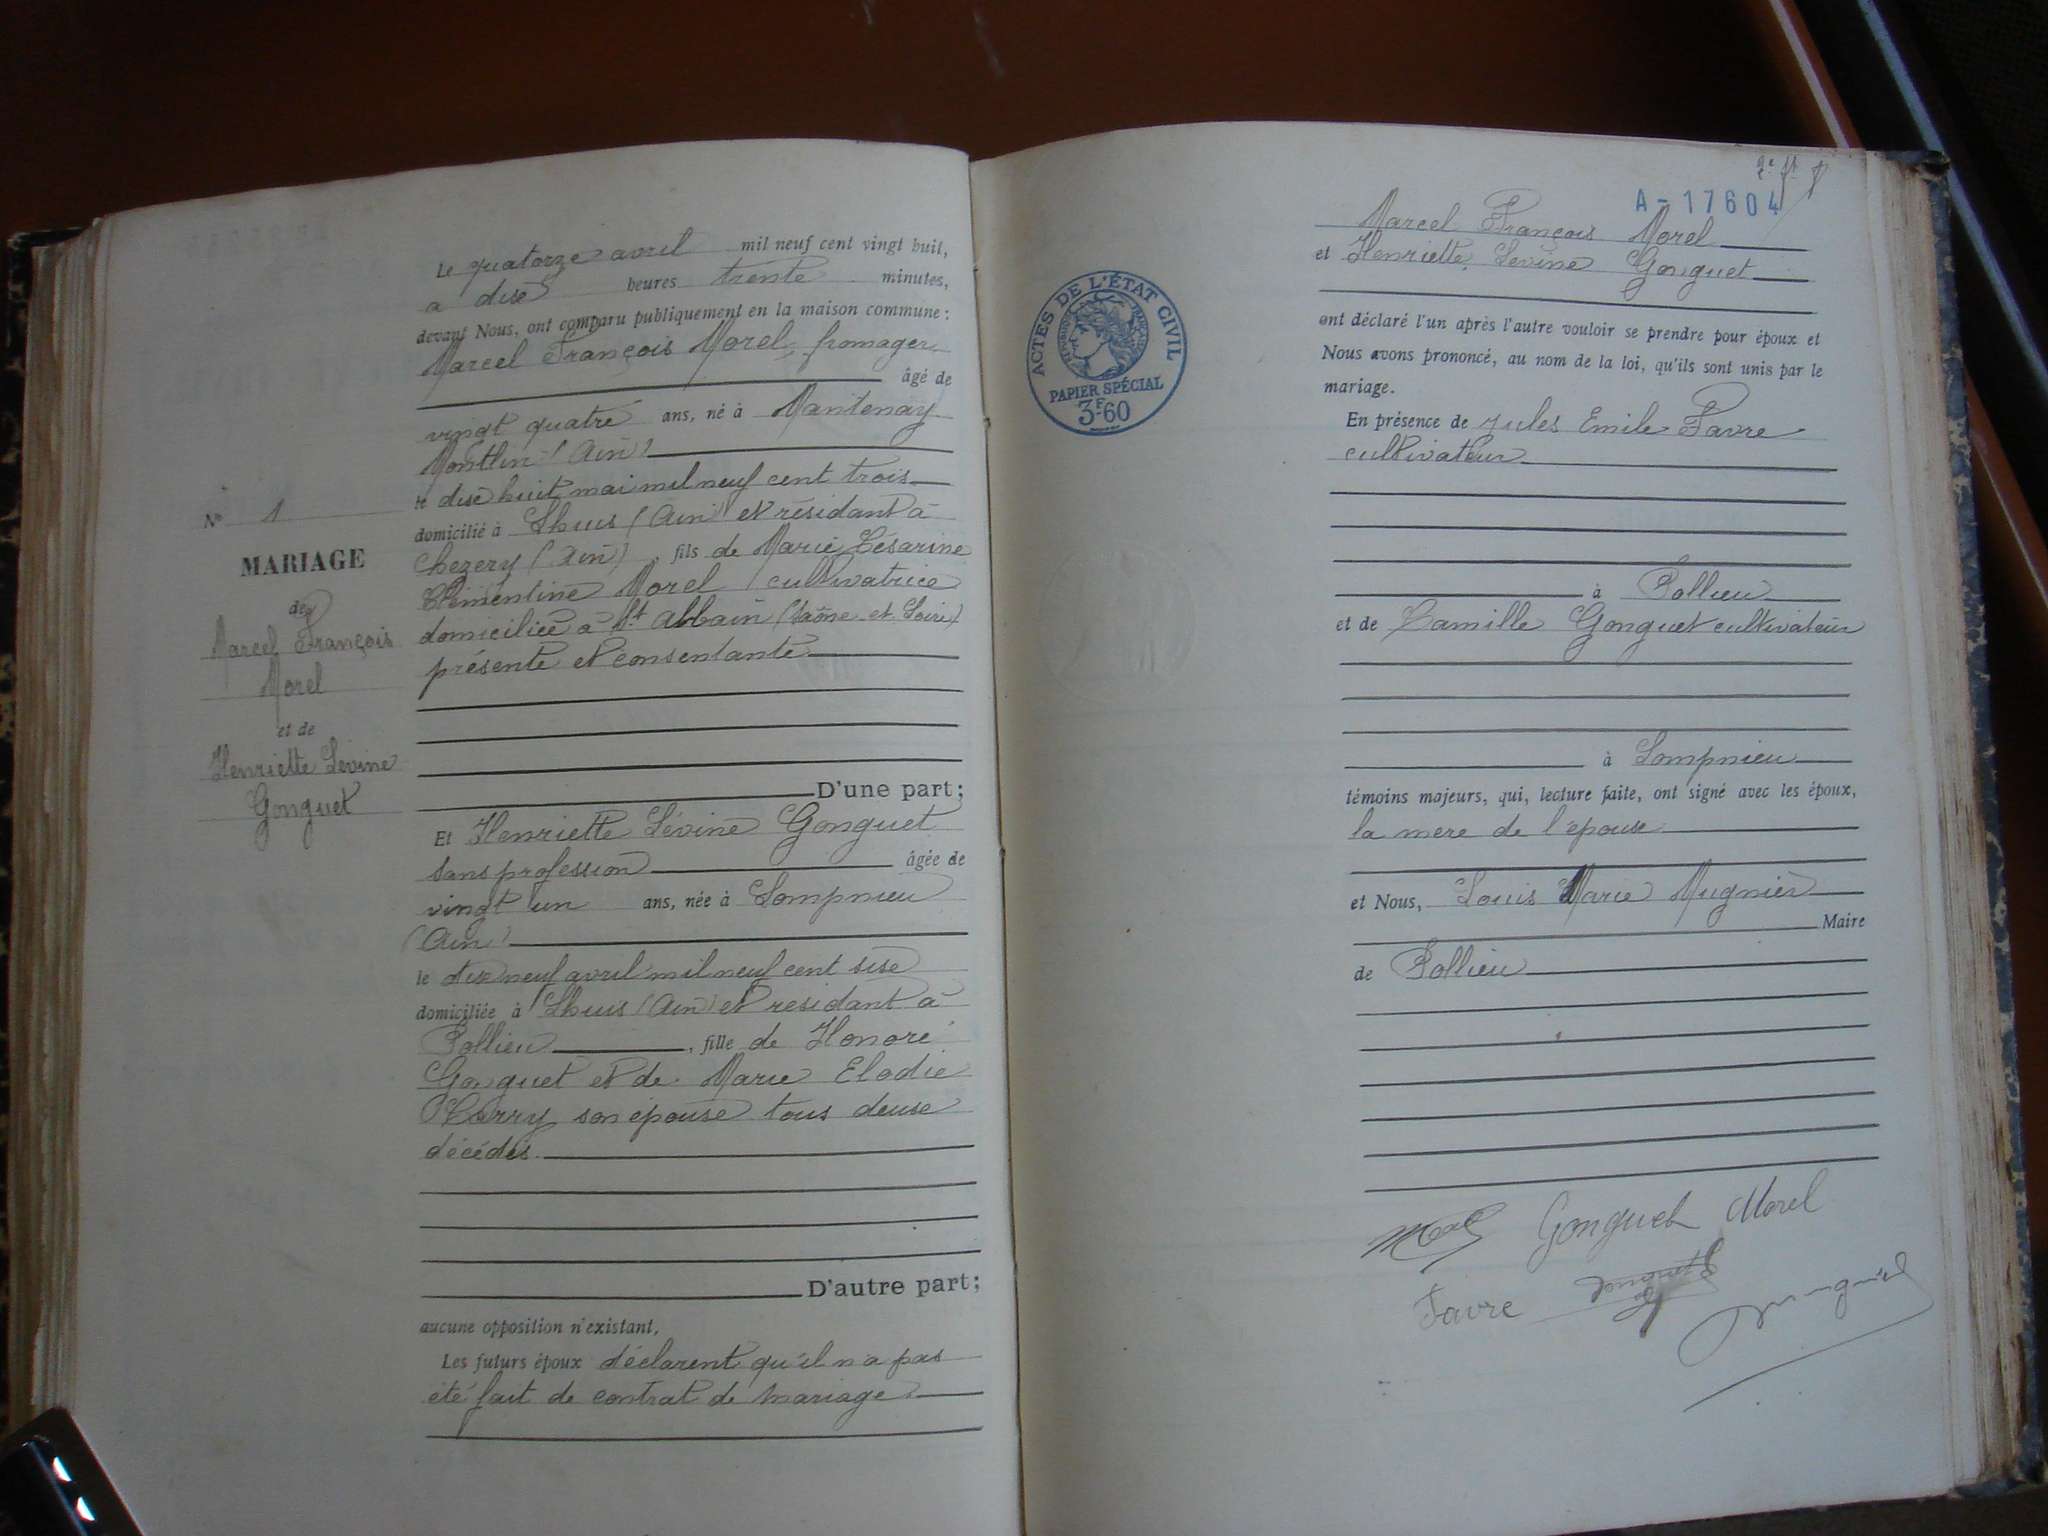 Le quatorze avril mil neuf cent vingt huit,
à dixe heures trente minutes,
devant Nous, ont comparu publiquement en la maison commune :
Marcel François Morel, fromager
âgé de
vingt quatre ans, né à Mantenay
Montlin (Ain)
le dixe huit mai mil neuf cent trois
domicilié à Lhuis (Ain) et résidant à
Chezery (Ain), fils de Marie Césarine
Clémentine Morel cultivatrice
domiciliée à St Albain (Saône et Loire)
présente et consentante
D'une part;
Nº 1
MARIAGE
de
Marcel François
Morel
et de
Henriette Lévine
Gonguet
Et Henriette Lévine Gonguet
sans profession âgée de
vingt un ans, née à Sompnieu
(Ain)
le dixe neuf avril mil neuf cent sixe
domiciliée à Lhuis (Ain) et résidant à
Pollieu, fille de Honoré
Gonguet et de Marie Elodie
Carry son épouse tous deuxe
décédés.
D'autre part;
aucune opposition n'existant,
Les futurs époux déclarent qu'il n'a pas
été fait de contrat de mariage.
A-17604
Marcel François Morel
et Henriette Lévine Gonguet
ACTES DE L'ÉTAT CIVIL
RÉPUBLIQUE FRANÇAISE
PAPIER SPÉCIAL
3F60
ont déclaré l'un après l'autre vouloir se prendre pour époux et
Nous avons prononcé, au nom de la loi, qu'ils sont unis par le
mariage.
En présence de Jules Emile Favre
cultivateur
à Pollieu
et de Camille Gonguet cultivateur
à Sompnieu
témoins majeurs, qui, lecture faite, ont signé avec les époux,
la mère de l'épouse
et Nous, Louis Marie Mugnier
Maire
de Pollieu
Gonguet Morel
Favre
Mugnier